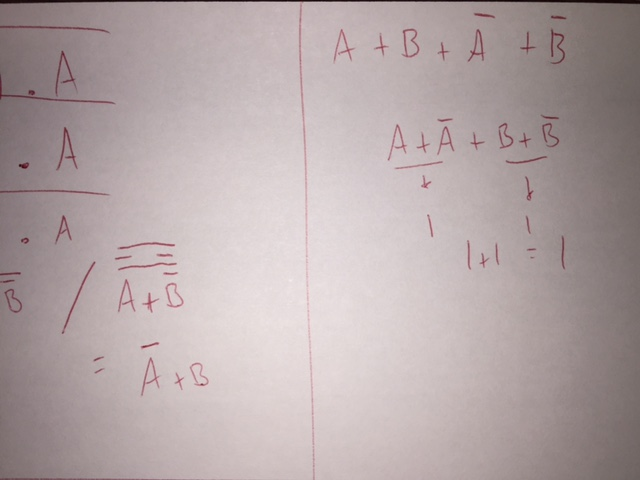 . A
. A
. A
B̿ / A + B
= A̅ + B
A + B + A̅ + B̅
A + A̅ + B + B̅
1 1
1+1 = 1